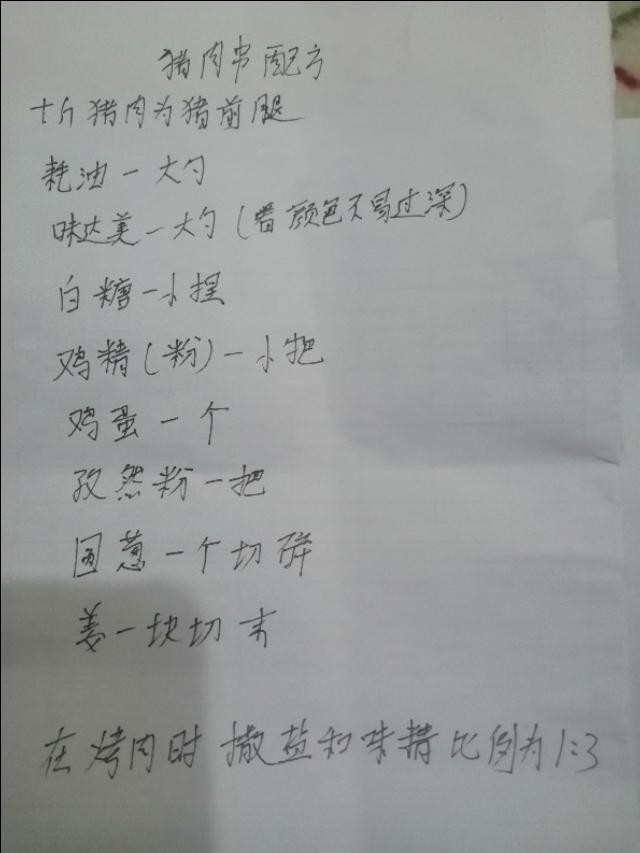 猪肉串配方
十斤猪肉为猪前腿
耗油一大勺
味达美一大勺(看颜色不易过深)
白糖一小捏
鸡精(粉)一小把
鸡蛋一个
孜然粉一把
园葱一个切碎
姜一块切末
在烤肉时撒盐和味精比例为1:3